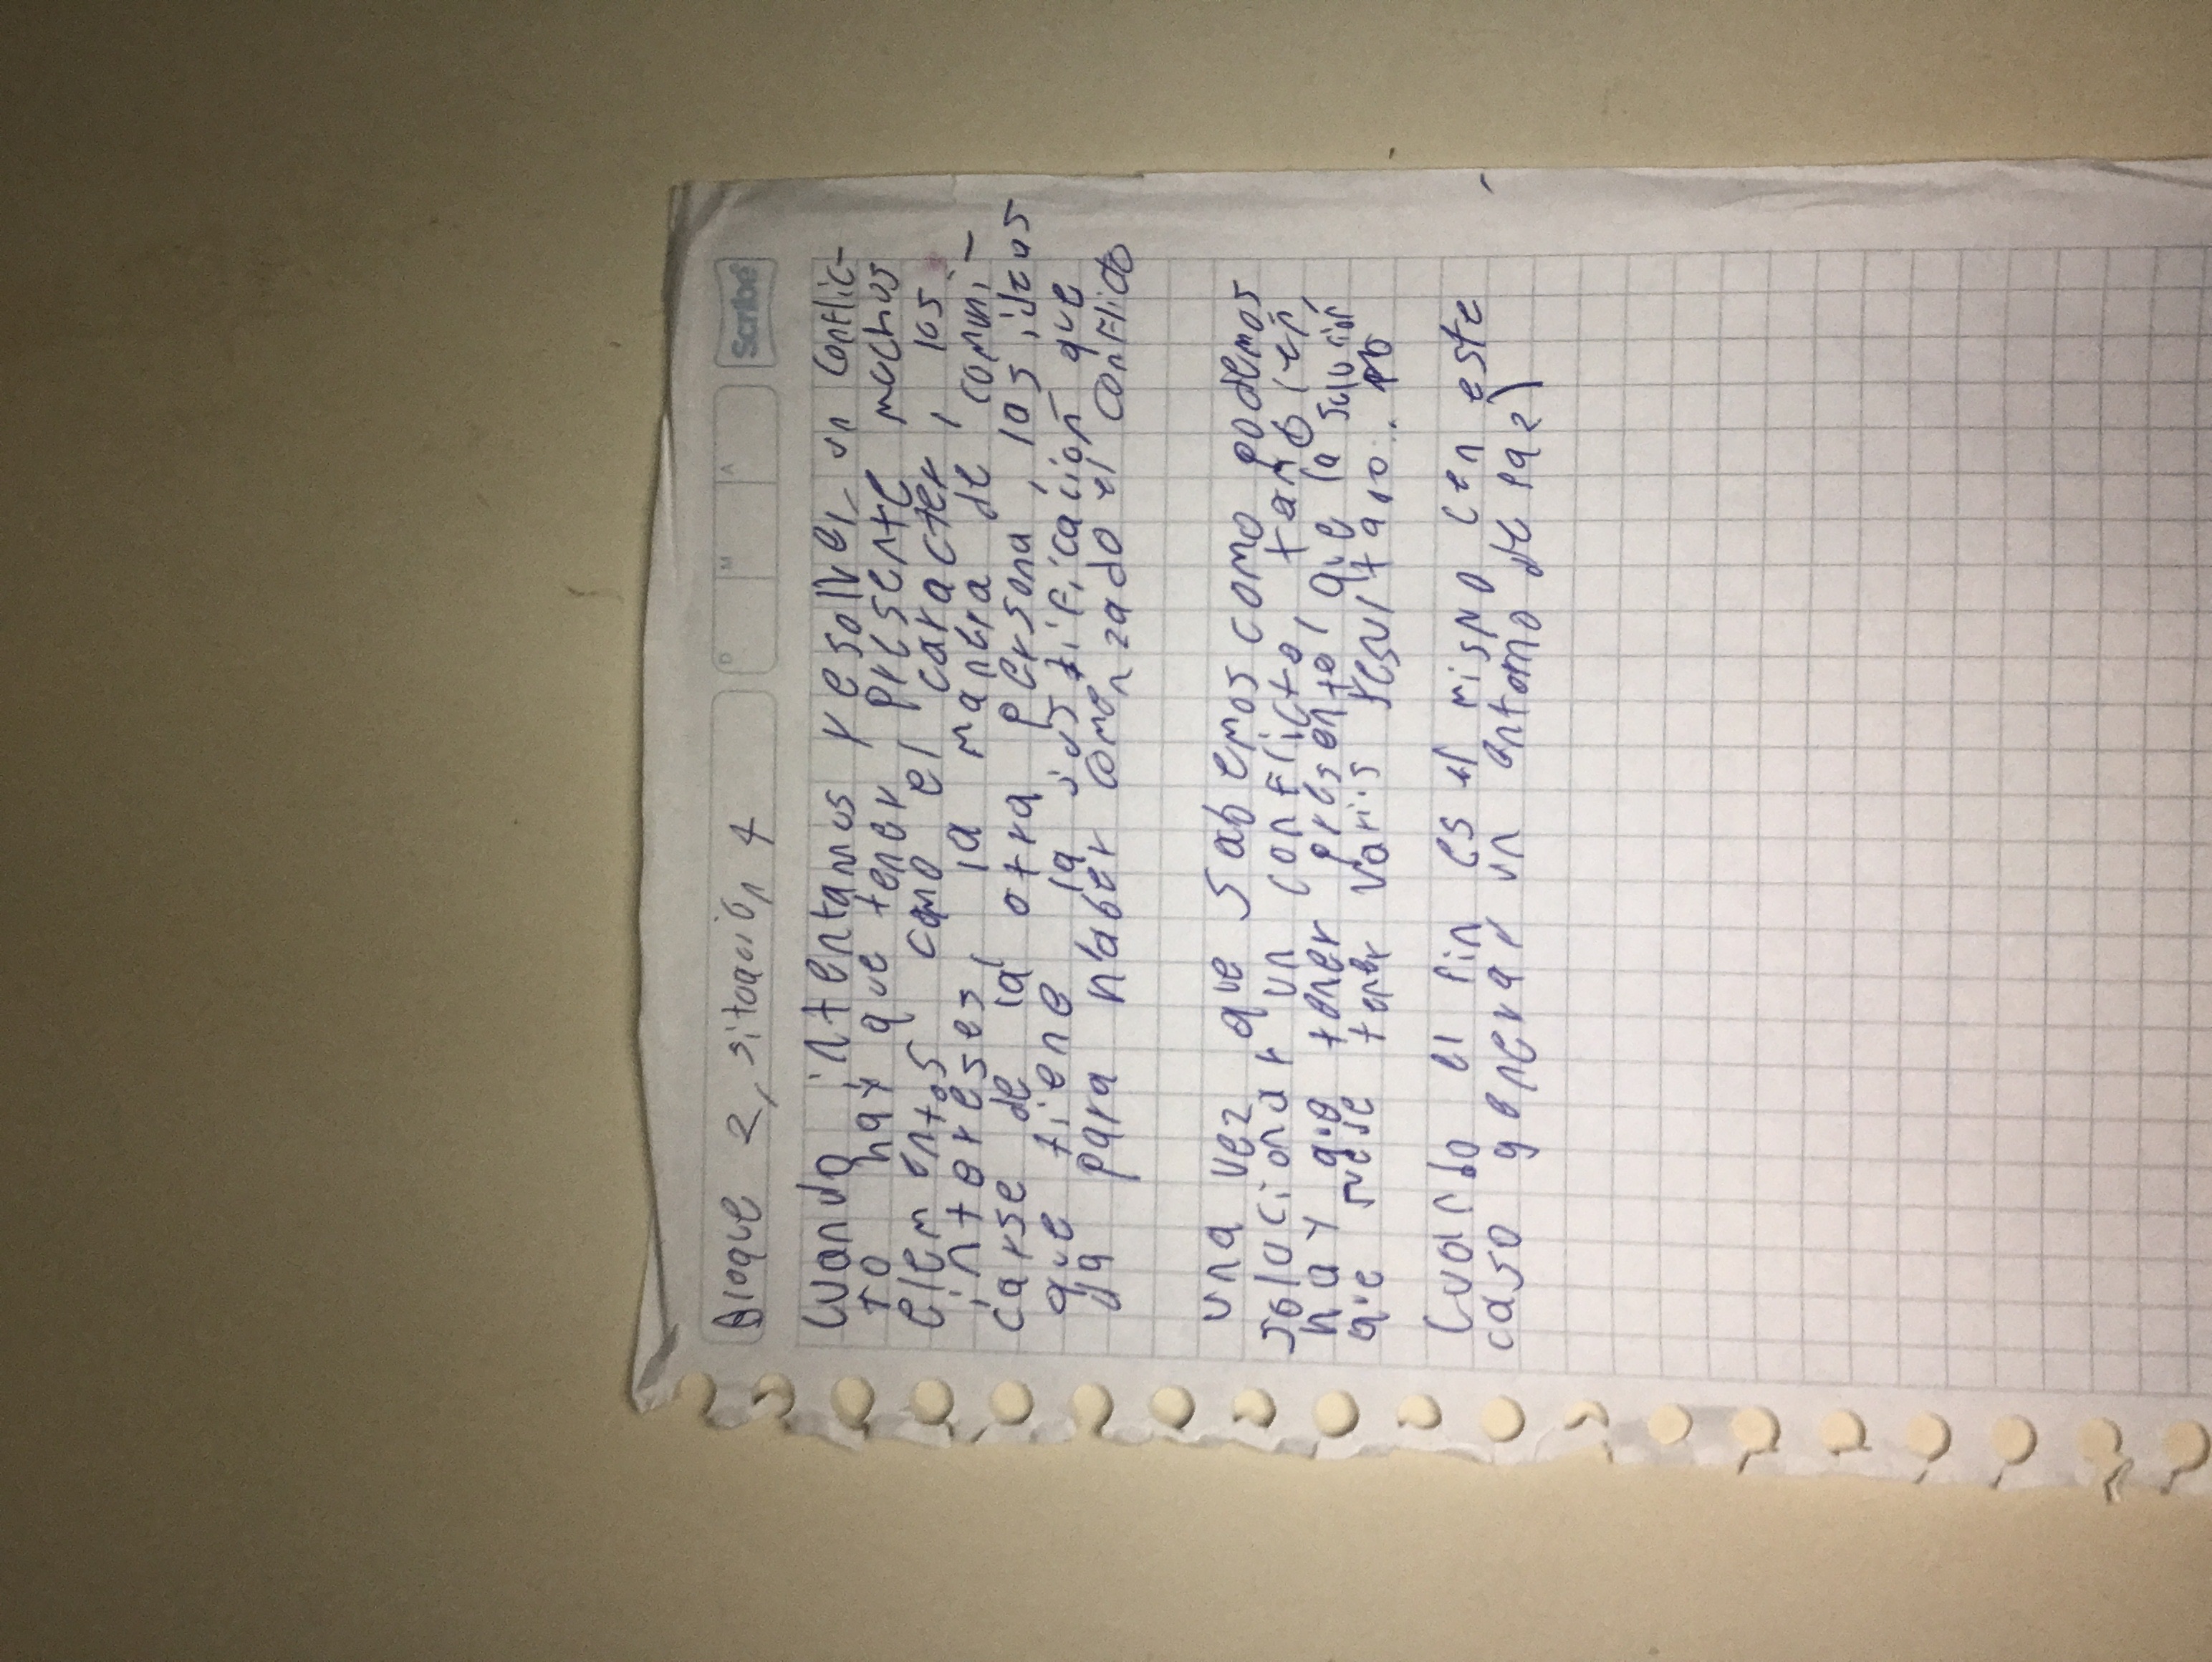 Scribe
D M A
Bloque 2, sitoación 4
Cuando intentamos resolver un conflic-
to hay que tener presente muchos
elementos como el caracter, los
intereses la manera de comuni-
carse de la otra persona, las ideas
que tiene la justificación que
da para haber comenzado el conflicto
una vez que sabemos como podemos
solucionar un conflicto, también,
hay que tener presente, que la solución
que suese tener varis resultano..
Cuando el fin es el mismo (en este
caso generar un entorno de paz)